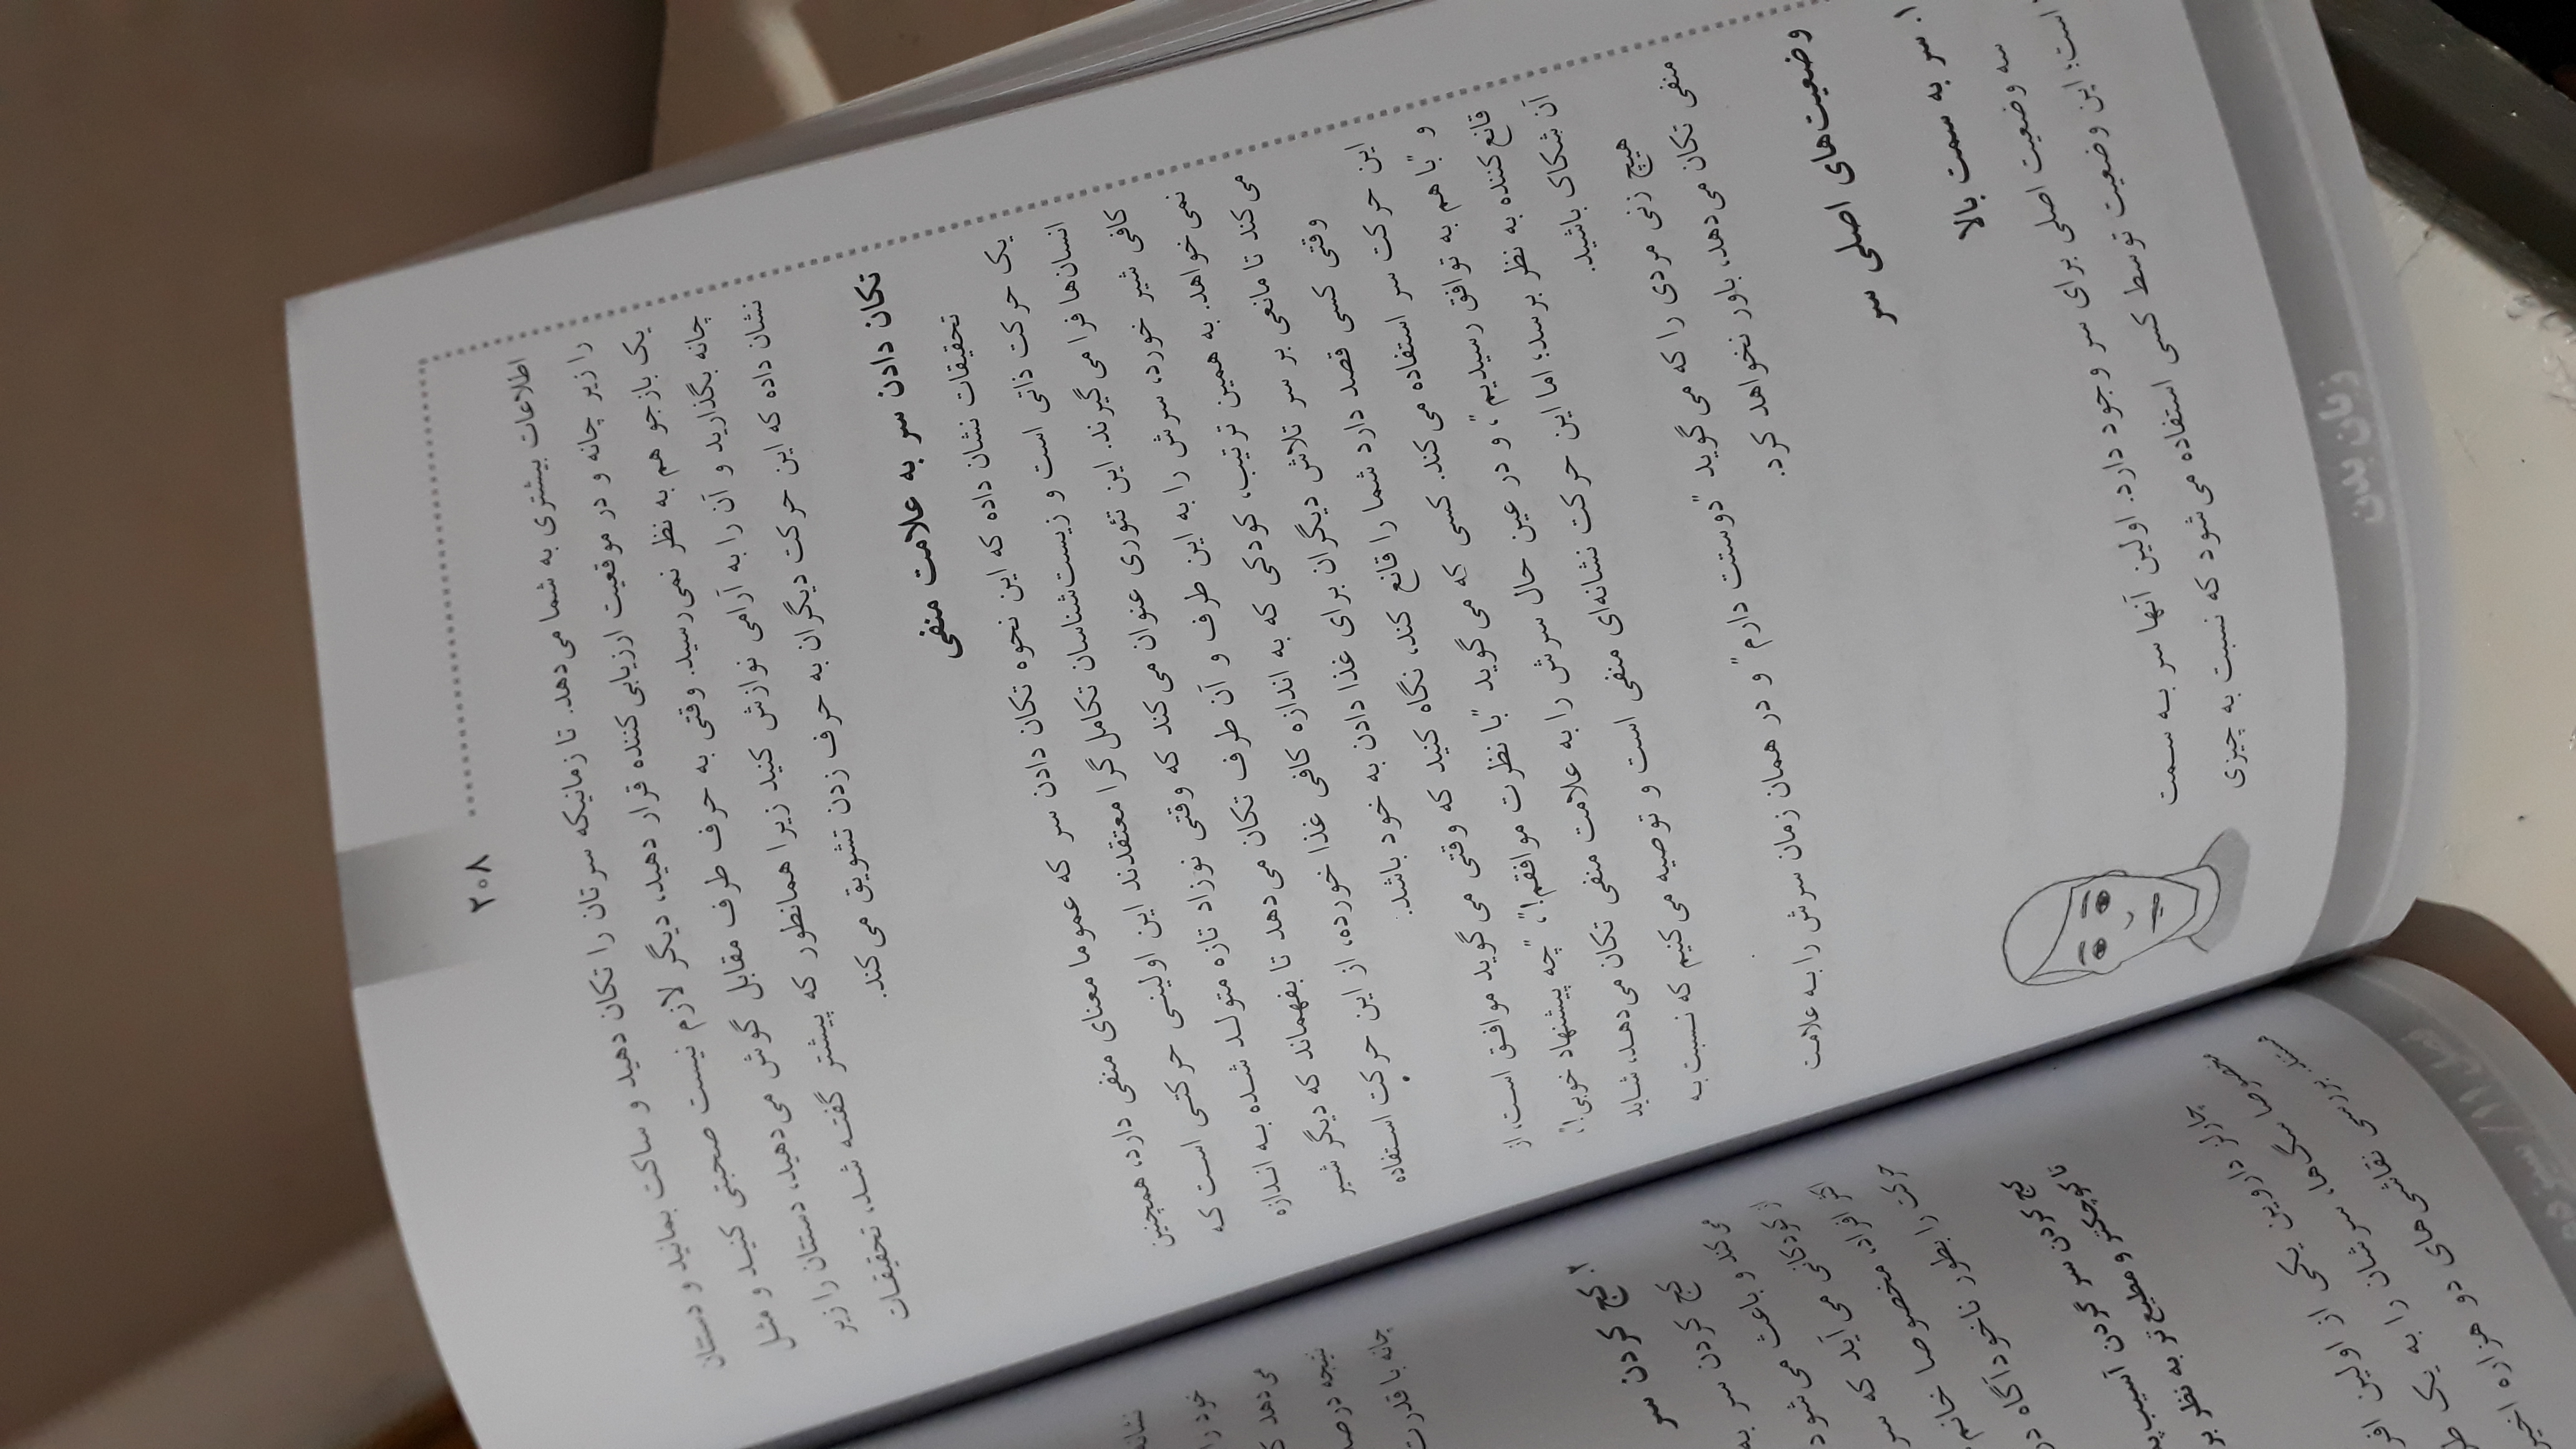 ۲۰۸
اطلاعات بیشتری به شما می‌دهد. تا زمانیکه سرتان را تکان دهید و ساکت بمانید و دستتان
را زیر چانه و در موقعیت ارزیابی‌کننده قرار دهید، دیگر لازم نیست صحبتی کنید و مثل
یک بازجو هم به نظر نمی‌رسید. وقتی به حرف طرف مقابل گوش می‌دهید، دستتان را زیر
چانه بگذارید و آن را به آرامی نوازش کنید زیرا همانطور که پیشتر گفته شد، تحقیقات
نشان داده که این حرکت دیگران به حرف زدن تشویق می‌کند.
تکان دادن سر به علامت منفی
تحقیقات نشان داده که این نحوه تکان دادن سر که عموما معنای منفی دارد، همچنین
یک حرکت ذاتی است و زیست‌شناسان تکامل‌گرا معتقدند این اولینی حرکتی است که
انسان‌ها فرا می‌گیرند. این تئوری عنوان می‌کند که وقتی نوزاد تازه متولد شده به اندازه
کافی شیر خورد، سرش را به این طرف و آن طرف تکان می‌دهد تا بفهماند که دیگر شیر
نمی‌خواهد. به همین ترتیب، کودکی که به اندازه کافی غذا خورده، از این حرکت استفاده
می‌کند تا مانعی بر سر تلاش دیگران برای غذا دادن به خود باشد.
وقتی کسی قصد دارد شما را قانع کند، نگاه کنید که وقتی می‌گوید موافق است، از
این حرکت سر استفاده می‌کند. کسی که می‌گوید "با نظرت موافقم!"، "چه پیشنهاد خوبی!"،
و "با هم به توافق رسیدیم"، و در عین حال سرش را به علامت منفی تکان می‌دهد، شاید
قانع‌کننده به نظر برسد؛ اما این حرکت نشانه‌ای منفی است و توصیه می‌کنیم که نسبت به
آن شکاک باشید.
هیچ زنی مردی را که می‌گوید "دوستت دارم" و در همان زمان سرش را به علامت
منفی تکان می‌دهد، باور نخواهد کرد.
وضعیت‌های اصلی سر
۱. سر به سمت بالا
سه وضعیت اصلی برای سر وجود دارد. اولین آنها سر به سمت
است؛ این وضعیت توسط کسی استفاده می‌شود که نسبت به چیزی
زبان بدن
خود را
می‌دهد
نتیجه
چانه با قدرت
۲. کج کردن سر
کج کردن سر به
می‌کند و باعث می‌شود
از کودکانی می‌آید که سر
اکثر افراد، مخصوصا
حرکت را بطور ناخودآگاه
کج کردن سر گردن
تا کوچکتر و مطیع‌تر به نظر
چارلز داروین یکی از اولین
مخصوصا سگ‌ها، سرشان را به یک
هستند. بررسی نقاشی‌های دو هزاره
فصل ۱۱/